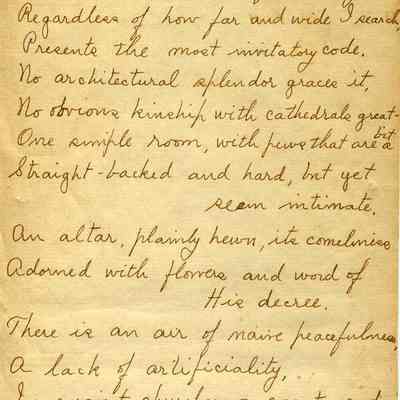 Regardless of how far and wide I search,
Presents the most invitatory code.
No architectural splendor graces it,
No obvious kinship with cathedrals great-
One simple room, with pews that are a bit
Straight-backed and hard, but yet
seem intimate.
An altar, plainly hewn, its comeliness
Adorned with flowers and word of
His decree.
There is an air of naive peacefulness,
A lack of artificiality,..